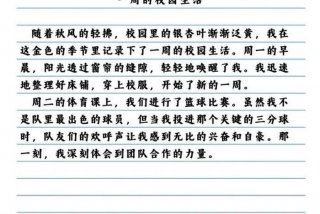 周的校园生活
随着秋风的轻拂，校园里的银杏叶渐渐泛黄，我在
这金色的季节里记录下了一周的校园生活。周一的早
晨，阳光透过窗帘的缝隙，轻轻地唤醒了我。我迅速
地整理好床铺，穿上校服，开始了新的一周。
周二的体育课上，我们进行了篮球比赛。虽然我不
是队里最出色的球员，但当我投进那个关键的三分球
时，队友们的欢呼声让我感到无比的兴奋和自豪。那
一刻，我深刻体会到团队合作的力量。